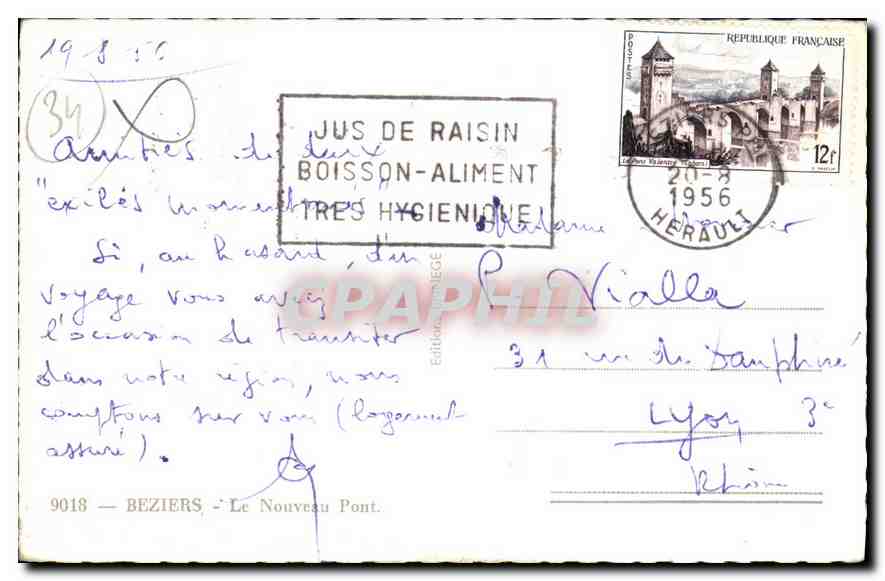 19-8-56
34
Amitiés de deux
"exilés momentanés"
Si, au hasard, d'un
voyage vous aviez
l'occasion de transiter
dans notre région, nous
comptons sur vous (logement
assuré).
9018 — BEZIERS - Le Nouveau Pont.
JUS DE RAISIN
BOISSON-ALIMENT
TRES HYGIENIQUE
Editions
CPAPHIL
POSTES
REPUBLIQUE FRANÇAISE
Le Pont Valentré (Cahors)
12f
20-8
1956
HERAULT
Madame Monsieur
P. Vialla
31 rue du Dauphiné
Lyon 3e
Rhône